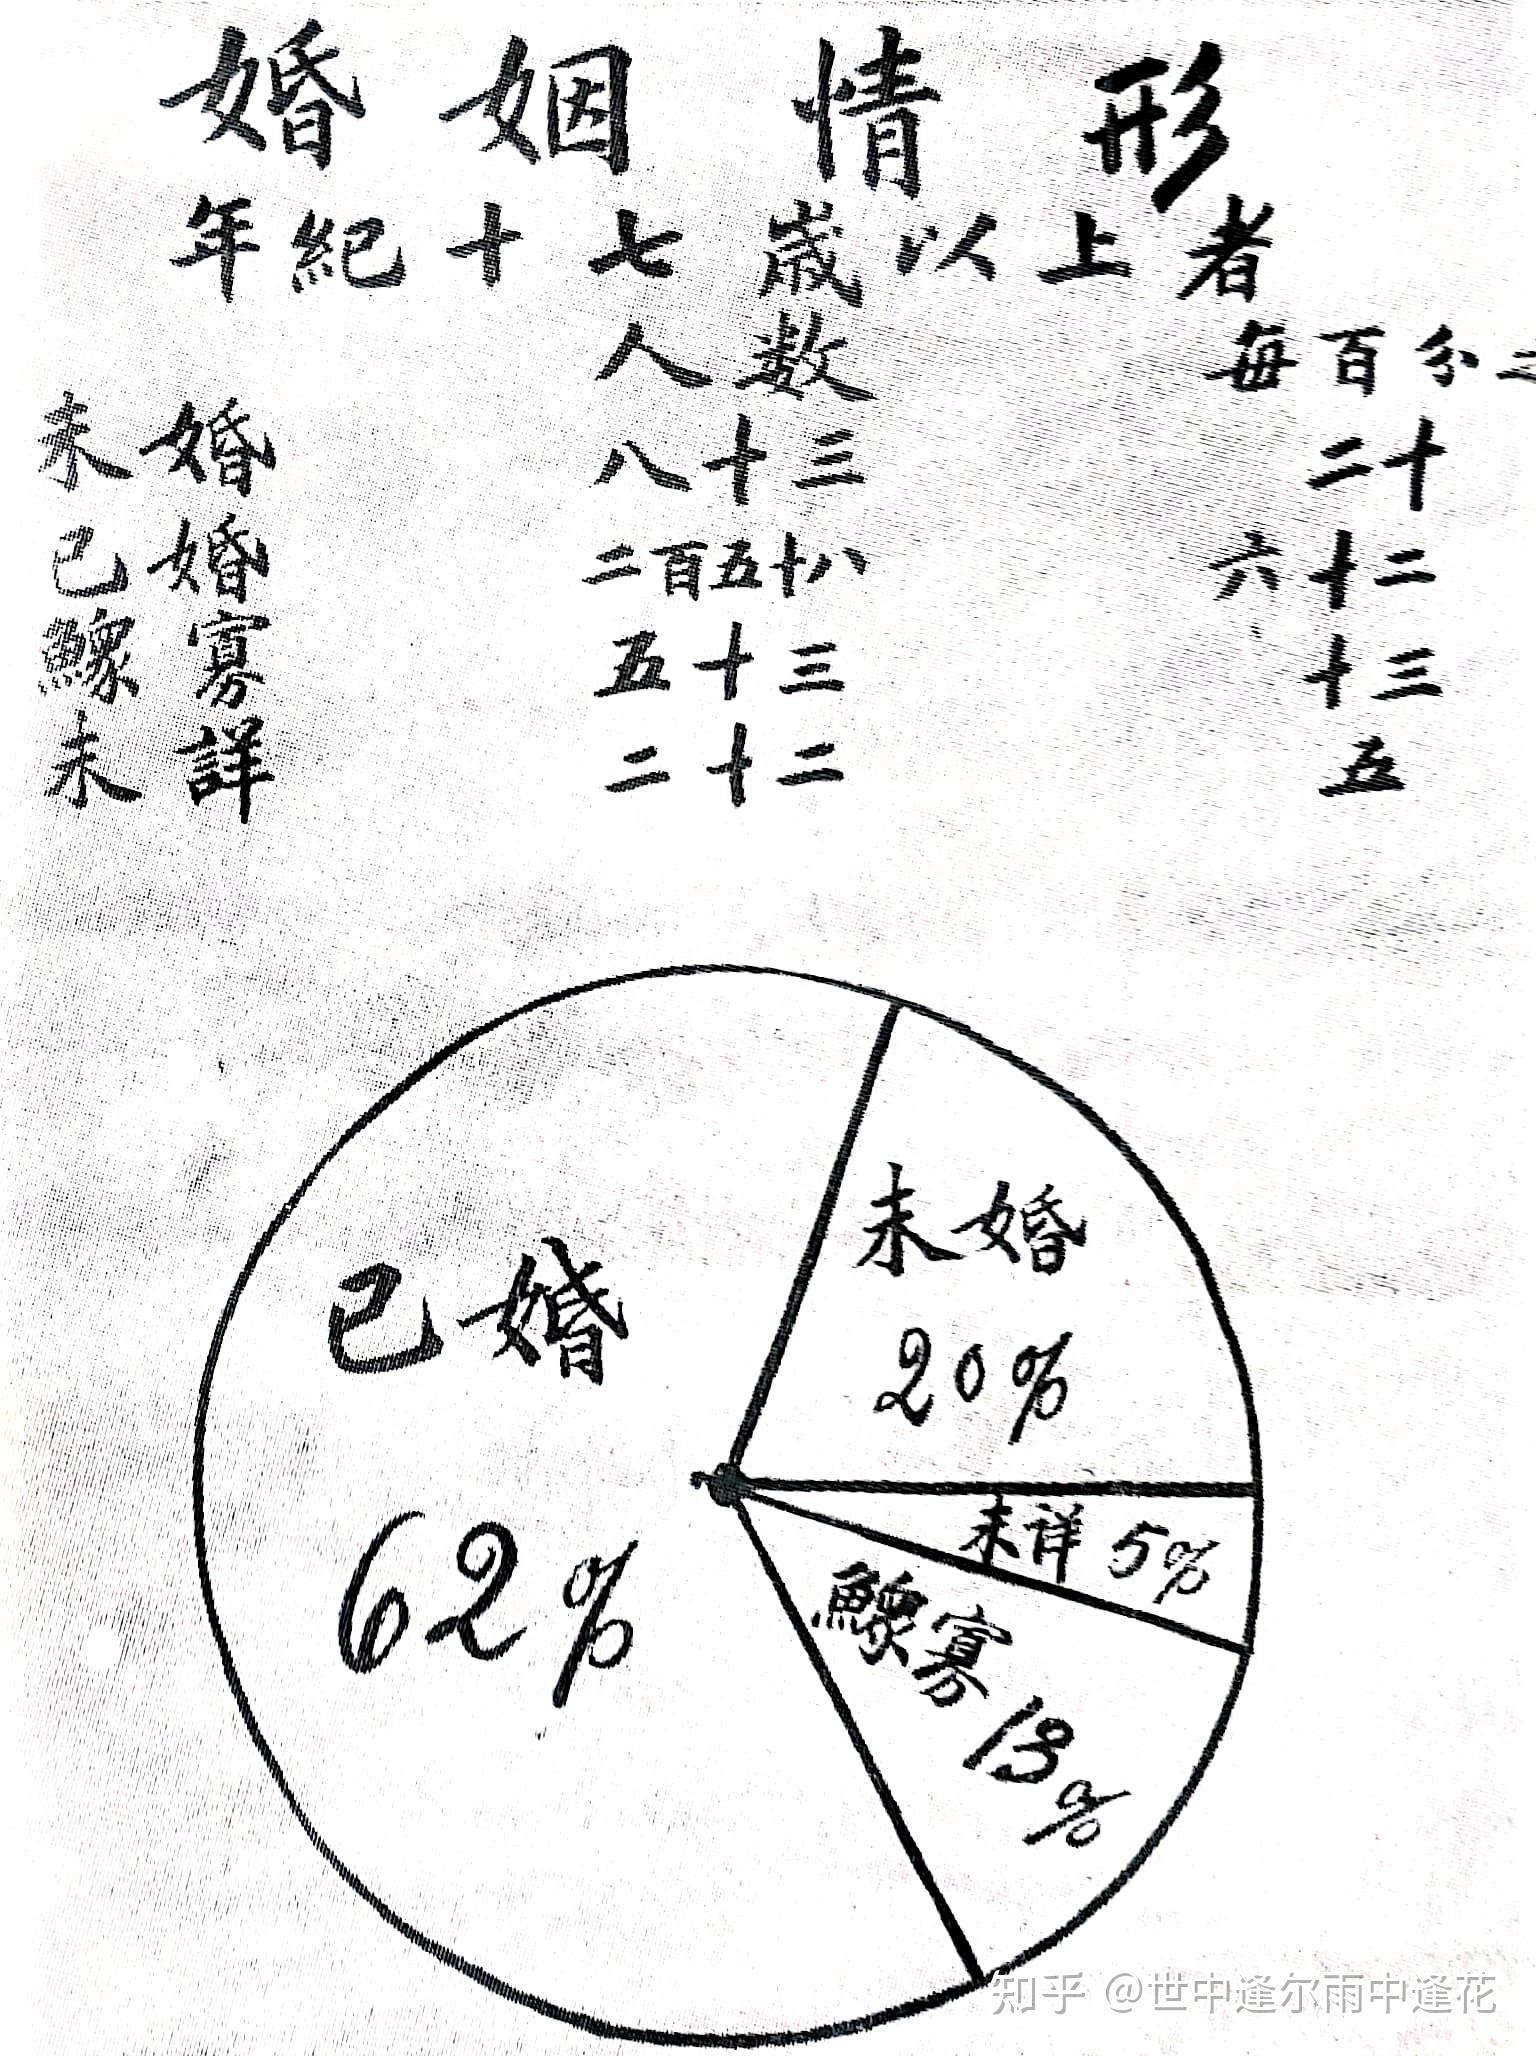 婚姻情形
年紀十七歲以上者
人数 每百分之
未婚 八十三 二十
已婚 二百五十八 六十二
鰥寡 五十三 十三
未詳 二十二 五
未婚
20%
已婚
62%
未詳 5%
鰥寡 13%
知乎 @世中逢尔雨中逢花